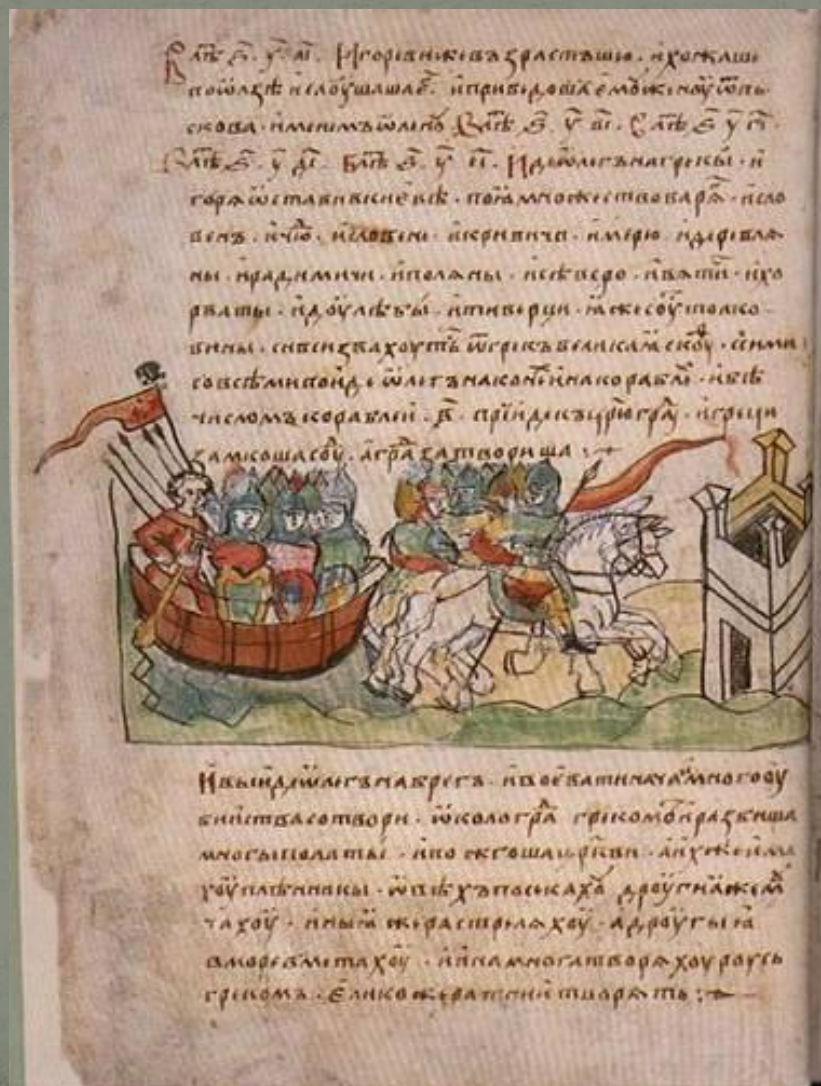 В лѣⷮ ѕ҃. у҃. аі҃. Игореви же възрастъшю. и хожаше
по ѡлзѣ и слоушаше еⷢ. и приведоша емоу женоу ѿ пь
скова. именемъ ѡленоу. В лѣⷮ ѕ҃. у҃ ві҃. В лѣⷮ ѕ҃ у҃ гі҃.
В лѣⷮ ѕ҃. у҃ ді҃. В лѣⷮ ѕ҃. у҃ еі҃. Иде ѡлегъ на грекы. и
горѧ ѡстави в киевѣ. поꙗ множество варѧⷢ. и сло
венъ. и чюⷣ. и словене. и кривичи. и мерю. и деревлѧ
ны. и радимичи. и полѧны. и сѣверо. и вѧтиⷱ. и хо
рваты. и доулѣбы. и тиверци. ꙗже соуⷮ толко
вины. си вси звахоуть ѿ грекъ великаꙗ скоуⷴ. с сими
со всѣми поиде ѡлегъ на конеⷯ и на кораблеⷯ. и бѣ
числомъ кораблеи. в҃. прииде къ црⷭюграⷣ. и греци
замкоша соуⷣ. а граⷣ затвориша
И выиде ѡлегъ на брегъ. и воевати начаⷧ. и много оу
биства сотвори. ѡколо граⷣ грекоⷨ. и разбиша
многы полаты. и пожгоша церкви. а ихже има
хоу плѣнникы. ѡвѣхъ посекахоу дроугиꙗ же моⷱ
чахоу. иныꙗ же растрелѧхоу. а дроугыꙗ
в море вметахоу. и ина многа творѧхоу роусь
грекомъ. елико же ратнии творѧть